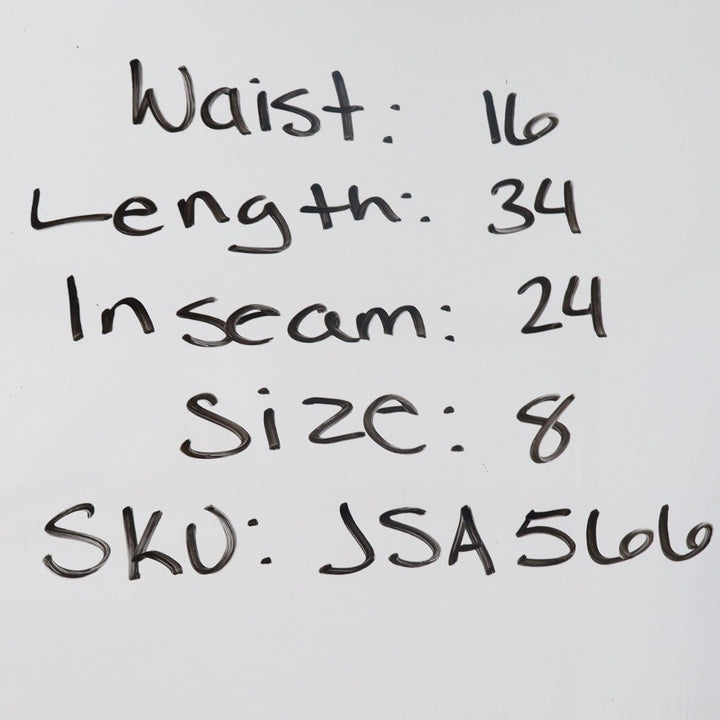 Waist: 16
Length: 34
Inseam: 24
Size: 8
SKU: JSA566